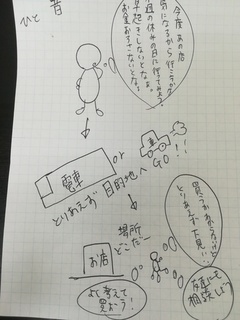 ひと 昔
今度あの店
気になるから行こうかな
今週の休みの日に行ってみよう
早起きしないとなぁ。
お金おろさないとなぁ
電車
or
GO!!
とりあえず 目的地へ
場所
どこだ〜
お店
買うかわからないけど
とりあえず大見!!
友達にも
相談しよう
よく考えて
買おう!